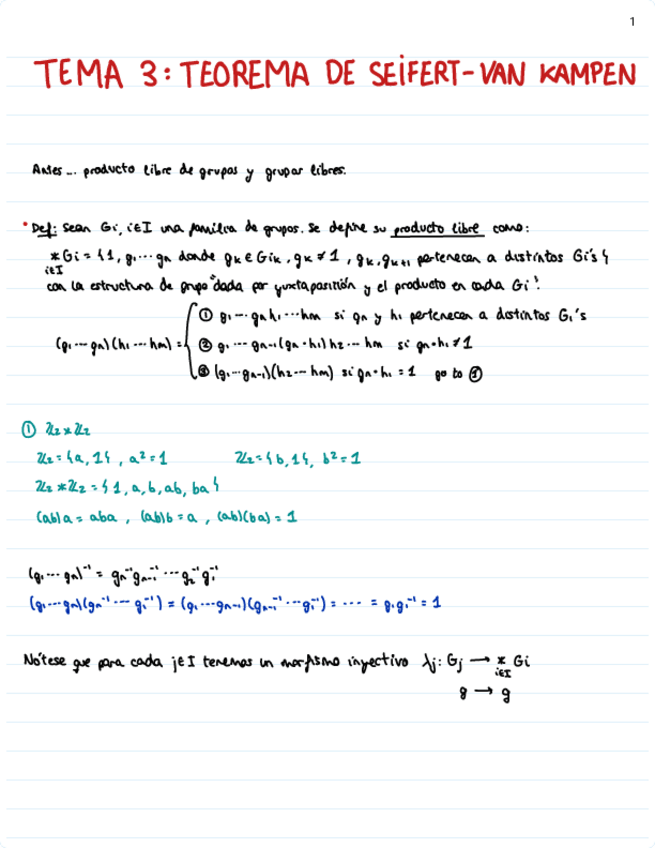 1
TEMA 3: TEOREMA DE SEIFERT-VAN KAMPEN
Antes... producto libre de grupos y grupos libres.
• Def: Sean Gi, i∈I una familia de grupos. Se define su producto libre como:
* Gi = {1, g₁...gn donde gk ∈ Gik, gk ≠ 1, gk, gk+1 pertenecen a distintos Gi's}
i∈I
con la estructura de grupo "dada por yuxtaposición y el producto en cada Gi":
① g₁...gn h₁...hm si gn y h₁ pertenecen a distintos Gi's
(g₁...gn)(h₁...hm) = { ② g₁...gn-1(gn·h₁)h₂...hm si gn·h₁ ≠ 1
③ (g₁...gn-1)(h₂...hm) si gn·h₁ = 1 go to ①
① ℤ₂*ℤ₂
ℤ₂ = {a, 1}, a² = 1 ℤ₂ = {b, 1}, b² = 1
ℤ₂*ℤ₂ = {1, a, b, ab, ba}
(ab)a = aba, (ab)b = a, (ab)(ba) = 1
(g₁...gn)⁻¹ = gn⁻¹gn-1⁻¹...g₂⁻¹g₁⁻¹
(g₁...gn)(gn⁻¹...g₁⁻¹) = (g₁...gn-1)(gn-1⁻¹...g₁⁻¹) = ... = g₁g₁⁻¹ = 1
Nótese que para cada j∈I tenemos un morfismo inyectivo λj: Gj → * Gi
i∈I
g → g